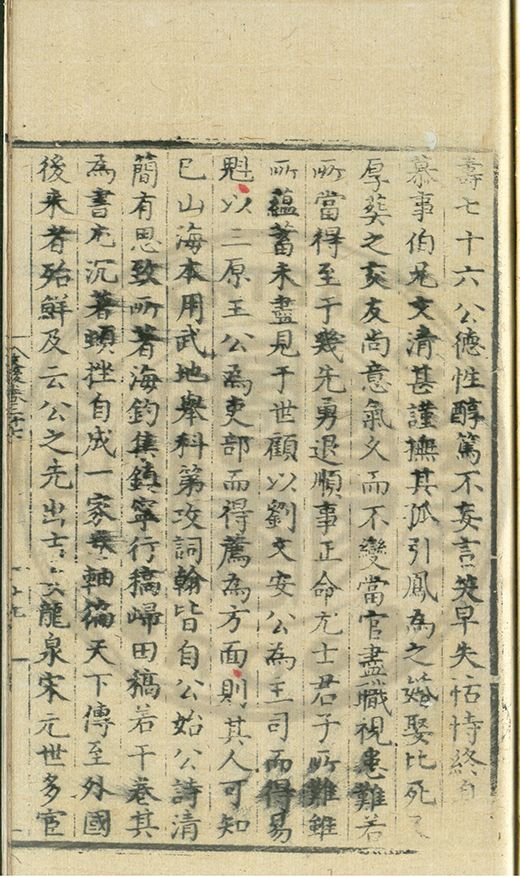 壽七十六公德性醇篤不妄言笑早失怙恃終身
慕事伯兄文清甚謹撫其孤引鳳為之婚娶比死又
厚葬之交友尚意氣久而不變當官盡職視患難若
所當得至于幾先勇退順事正命尤士君子所難雖
所蘊蓄未盡見于世顧以劉文安公為主司而得易
魁以三原王公為吏部而得薦為方面則其人可知
已山海本用武地舉科第攻詞翰皆自公始公詩清
簡有思致所著海釣集鎮寧行稿歸田稿若干卷其
為書尤沉著頓挫自成一家卷軸徧天下傳至外國
後來者殆鮮及云公之先出吉龍泉宋元世多宦